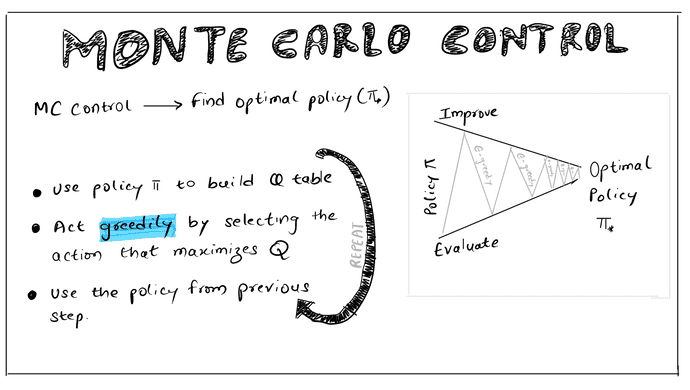 MONTE CARLO CONTROL
MC Control → Find optimal policy (π*)
• Use policy π to build Q table
• Act greedily by selecting the
action that maximizes Q
• Use the policy from previous
step.
REPEAT
Improve
Policy π
ε-greedy
ε-greedy
Evaluate
Optimal
Policy
π*